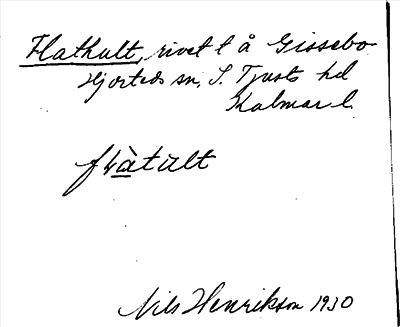 Flathult, rivet t å Gissebo
Hjorteds sn, S. Tjusts hd
Kalmar l.
flàtult
Nils Henrikson 1930